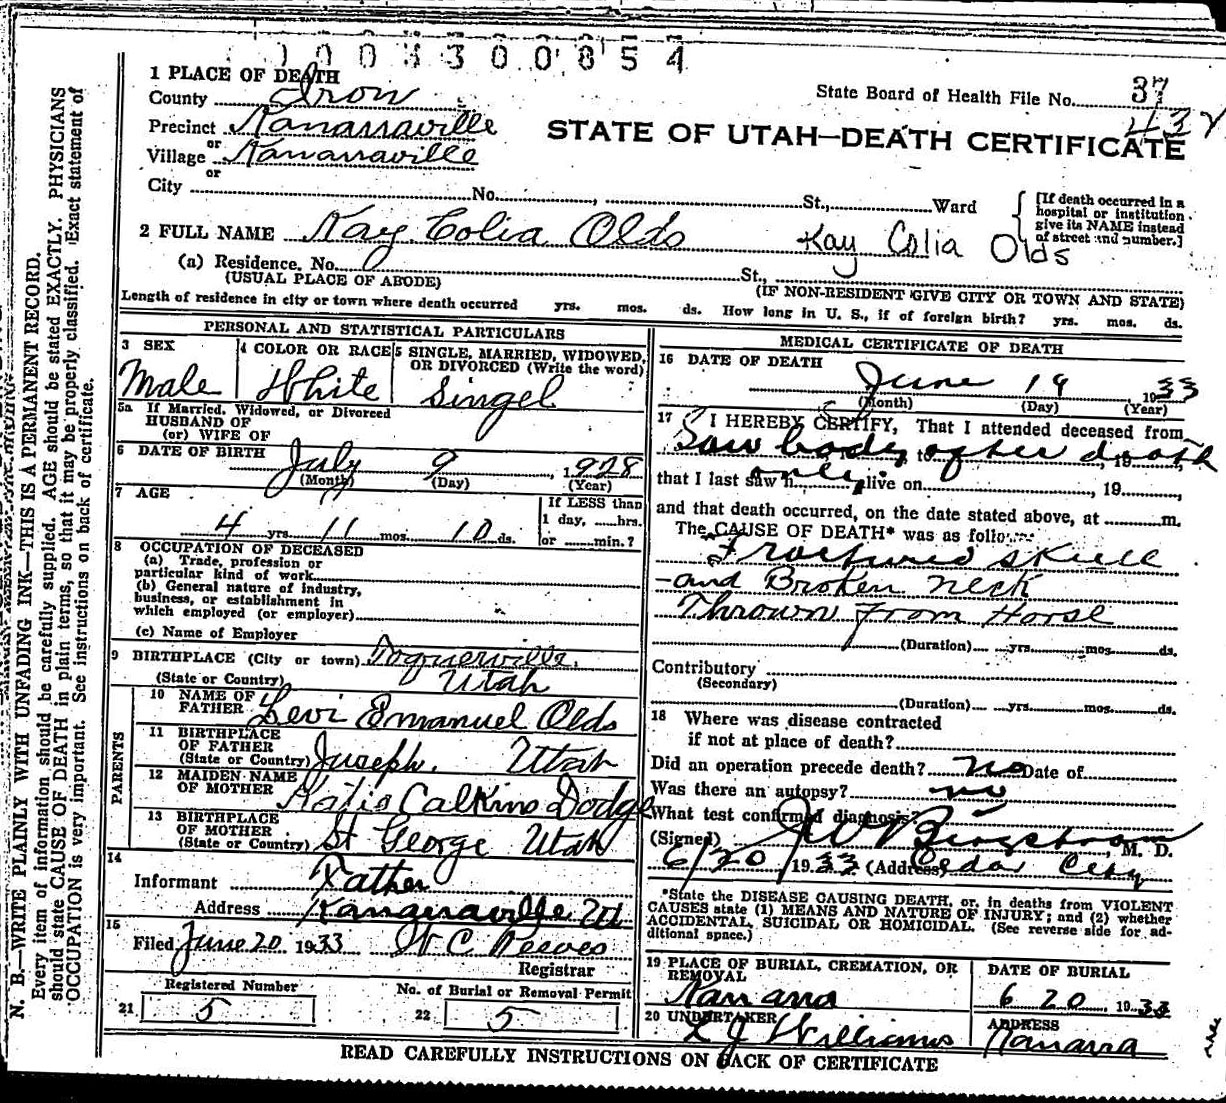 1003300854
1 PLACE OF DEATH
County Iron
State Board of Health File No. 37
432
Precinct Kanarraville
or
Village Kanarraville
STATE OF UTAH—DEATH CERTIFICATE
or
City No. St., Ward
[If death occurred in a hospital or institution give its NAME instead of street and number.]
2 FULL NAME Kay Colia Olds Kay Colia Olds
(a) Residence. No. St.,
(USUAL PLACE OF ABODE) (IF NON-RESIDENT GIVE CITY OR TOWN AND STATE)
Length of residence in city or town where death occurred yrs. mos. ds. How long in U. S., if of foreign birth? yrs. mos. ds.
PERSONAL AND STATISTICAL PARTICULARS
3 SEX
Male
4 COLOR OR RACE
White
5 SINGLE, MARRIED, WIDOWED,
OR DIVORCED (Write the word)
Singel
5a If Married, Widowed, or Divorced
HUSBAND OF
(or) WIFE OF
6 DATE OF BIRTH
July 9 1928
(Month) (Day) (Year)
7 AGE
4 yrs. 11 mos. 10 ds.
If LESS than
1 day, hrs.
or min.?
8 OCCUPATION OF DECEASED
(a) Trade, profession or
particular kind of work
(b) General nature of industry,
business, or establishment in
which employed (or employer)
(c) Name of Employer
9 BIRTHPLACE (City or town) Toquerville,
(State or Country) Utah
PARENTS
10 NAME OF
FATHER Levi Emanuel Olds
11 BIRTHPLACE
OF FATHER
(State or Country) Joseph. Utah
12 MAIDEN NAME
OF MOTHER Katie Calkins Dodge
13 BIRTHPLACE
OF MOTHER
(State or Country) St George Utah
14
Informant Father
Address Kanarraville Ut
15
Filed June 20 1933 W C Reeves
Registrar
Registered Number
21 5
No. of Burial or Removal Permit
22 5
MEDICAL CERTIFICATE OF DEATH
16 DATE OF DEATH
June 19 1933
(Month) (Day) (Year)
17 I HEREBY CERTIFY, That I attended deceased from
Saw body after death to , 19
only
that I last saw h alive on , 19 ,
and that death occurred, on the date stated above, at m.
The CAUSE OF DEATH* was as follows:
Fractured skull
and Broken neck
Thrown From Horse
(Duration) yrs. mos. ds.
Contributory
(Secondary)
(Duration) yrs. mos. ds.
18 Where was disease contracted
if not at place of death?
Did an operation precede death? no Date of
Was there an autopsy? no
What test confirmed diagnosis?
(Signed) J W Bergstrom, M. D.
6/20 1933 (Address) Cedar City
*State the DISEASE CAUSING DEATH, or, in deaths from VIOLENT
CAUSES state (1) MEANS AND NATURE OF INJURY; and (2) whether
ACCIDENTAL, SUICIDAL OR HOMICIDAL. (See reverse side for ad-
ditional space.)
19 PLACE OF BURIAL, CREMATION, OR
REMOVAL
Kanarra
DATE OF BURIAL
6 20 1933
20 UNDERTAKER
L J Williams
ADDRESS
Kanarra
READ CAREFULLY INSTRUCTIONS ON BACK OF CERTIFICATE
N. B.—WRITE PLAINLY WITH UNFADING INK—THIS IS A PERMANENT RECORD.
Every item of information should be carefully supplied. AGE should be stated EXACTLY. PHYSICIANS
should state CAUSE OF DEATH in plain terms, so that it may be properly classified. Exact statement of
OCCUPATION is very important. See instructions on back of certificate.